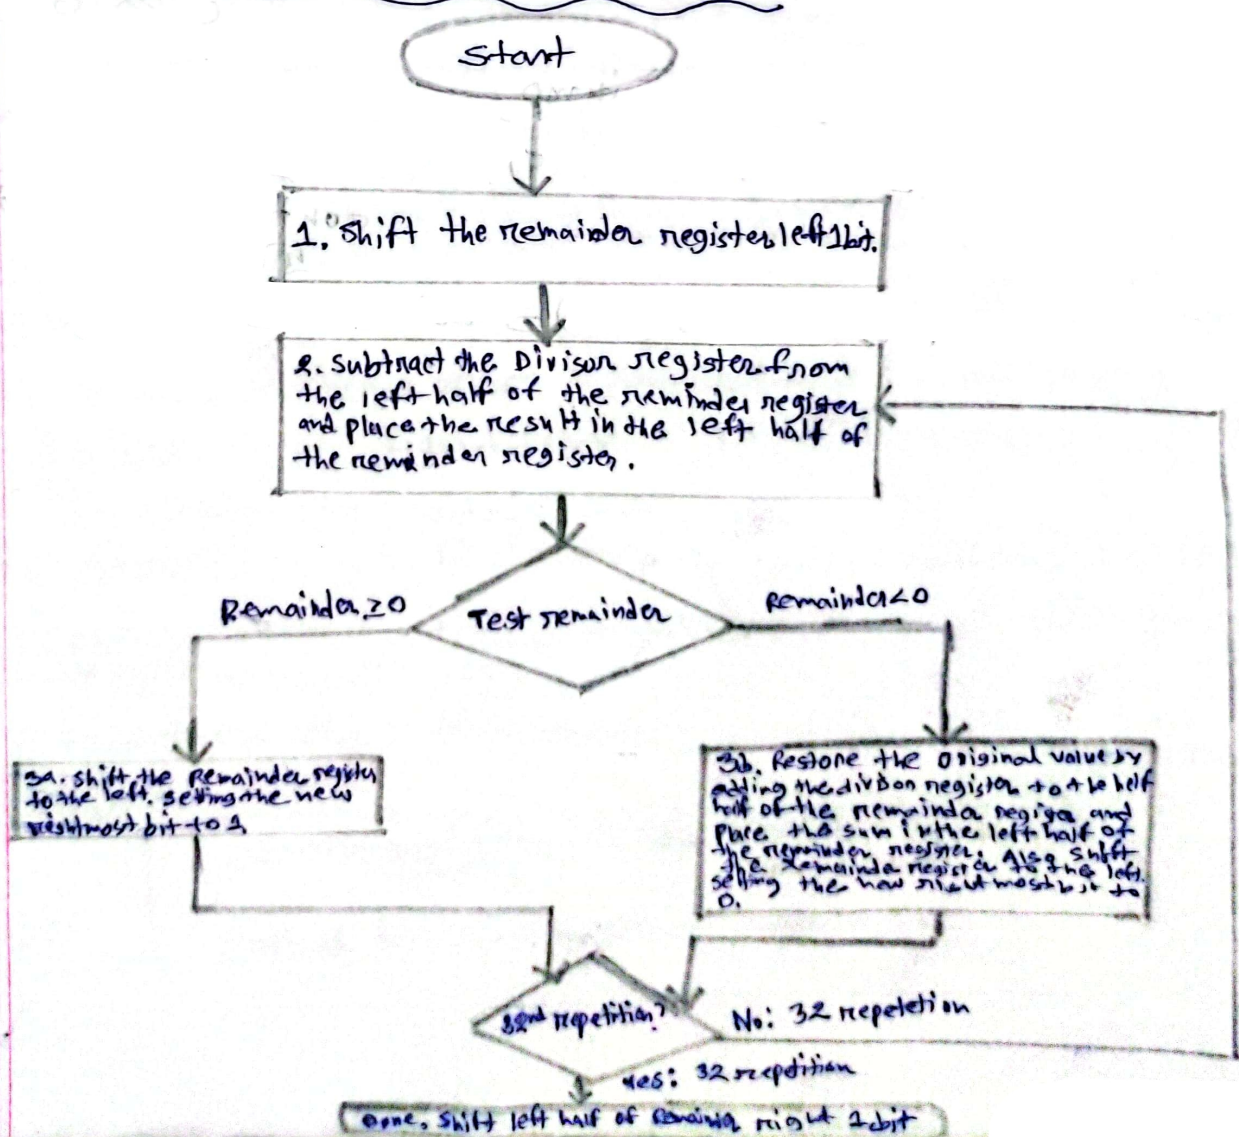 Start
1. Shift the remainder register left 1 bit.
2. Subtract the Divisor register from
the left half of the reminder register
and place the result in the left half of
the reminder register.
Test remainder
Remainder ≥ 0
Remainder < 0
3a. Shift the Remainder register
to the left, setting the new
rightmost bit to 1
3b. Restore the original value by
adding the divison register to the
half of the remainder and
place the sum in the left half of
the remainder register. Also shift
the remainder register to the left.
setting the new rightmost bit to
0.
32nd repetition?
No: 32 repetetion
Yes: 32 repetition
Done. Shift left half of right 1 bit